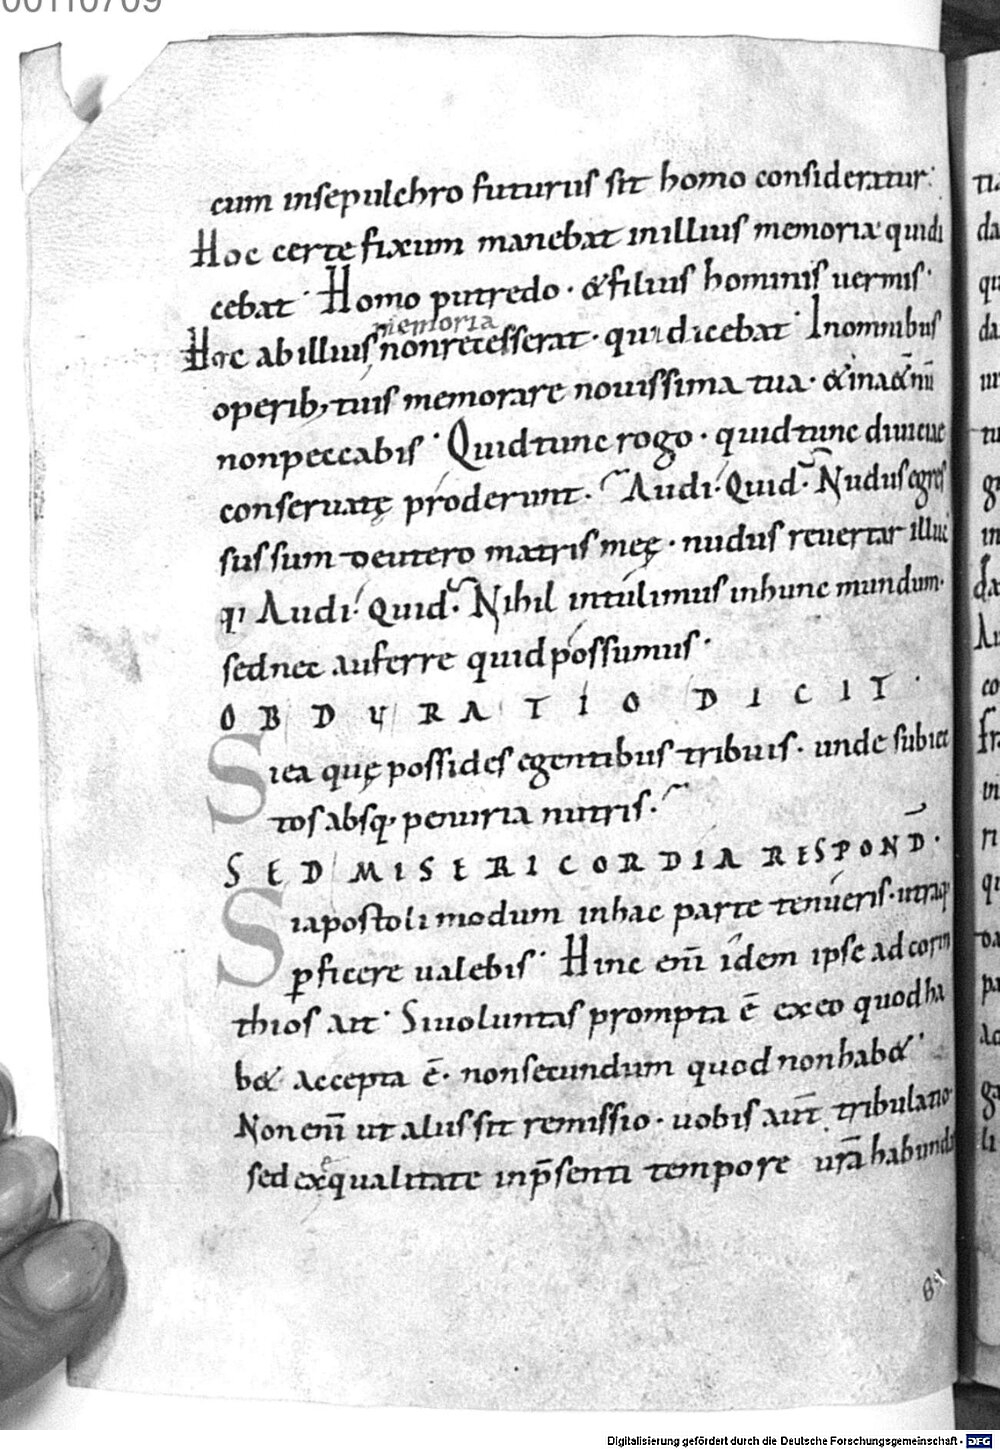 00110709
cum insepulchro futurus sit homo consideratur.
Hoc certe fixum manebat inillius memoria quidi
cebat. Homo putredo. &filius hominis uermis.
memoria
Hoc abillius nonrecesserat. quidicebat. Inomnibus
operib; tuis memorare nouissima tua. &inaet̄nū
nonpeccabis. Quidtunc rogo. quidtunc diuicie
conseruatę proderunt. Audi. Quid. Nudus egres
sus sum deutero matris meę. nudus reuertar illuc
qi Audi. Quid. Nihil intulimus inhunc mundum.
sednec auferre quidpossumus.
OBDURATIO DICIT.
Si ea quę possides egentibus tribuis. unde subiec
tos absq; penuria nutris.
SED MISERICORDIA RESPOND̄.
Si apostoli modum inhac parte tenueris. utraq;
ꝑficere ualebis. Hinc eni̅ idem ipse ad corin
thios ait. Siuoluntas prompta ē ex eo quod ha
b& accepta ē. nonsecundum quod nonhab&.
Non eni̅ ut aliis sit remissio. uobis aut̄ tribulatio
sed ex ęqualitate inp̄senti tempore ur̄a habunda